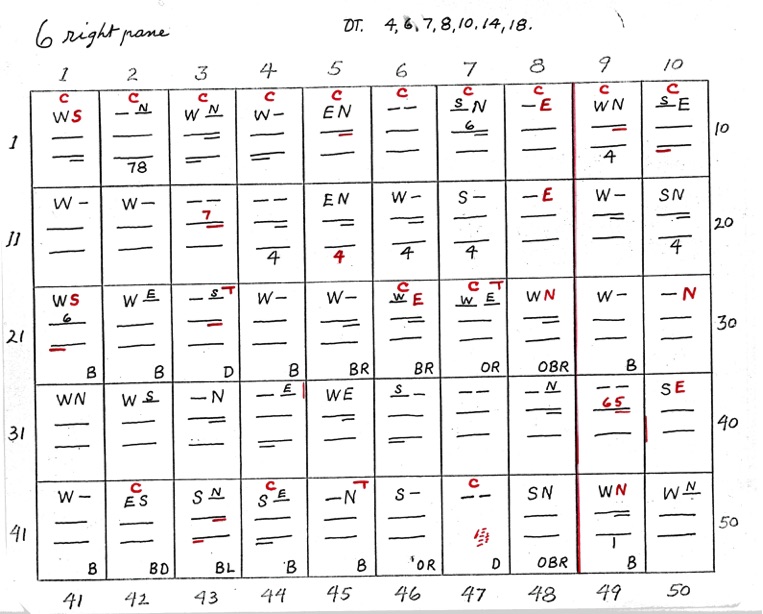 6 right pane
DT. 4, 6, 7, 8, 10, 14, 18.
1 2 3 4 5 6 7 8 9 10
C C C C C C C C C C
WS –N WN W– EN –– SN –E WN SE
1 10
6
78 4
W– W– –– –– EN W– S– –E W– SN
11 7 20
4 4 4 4 4
C C
WS WE –ST W– W– WE WET WN W– –N
6
21 30
B B D B BR BR OR OBR B
WN WS –N –E WE S– –– –N –– SE
65
31 40
C C C
W– ES SN SE –NT S– –– SN WN WN
41 50
1
B BD BL B B OR D OBR B
41 42 43 44 45 46 47 48 49 50